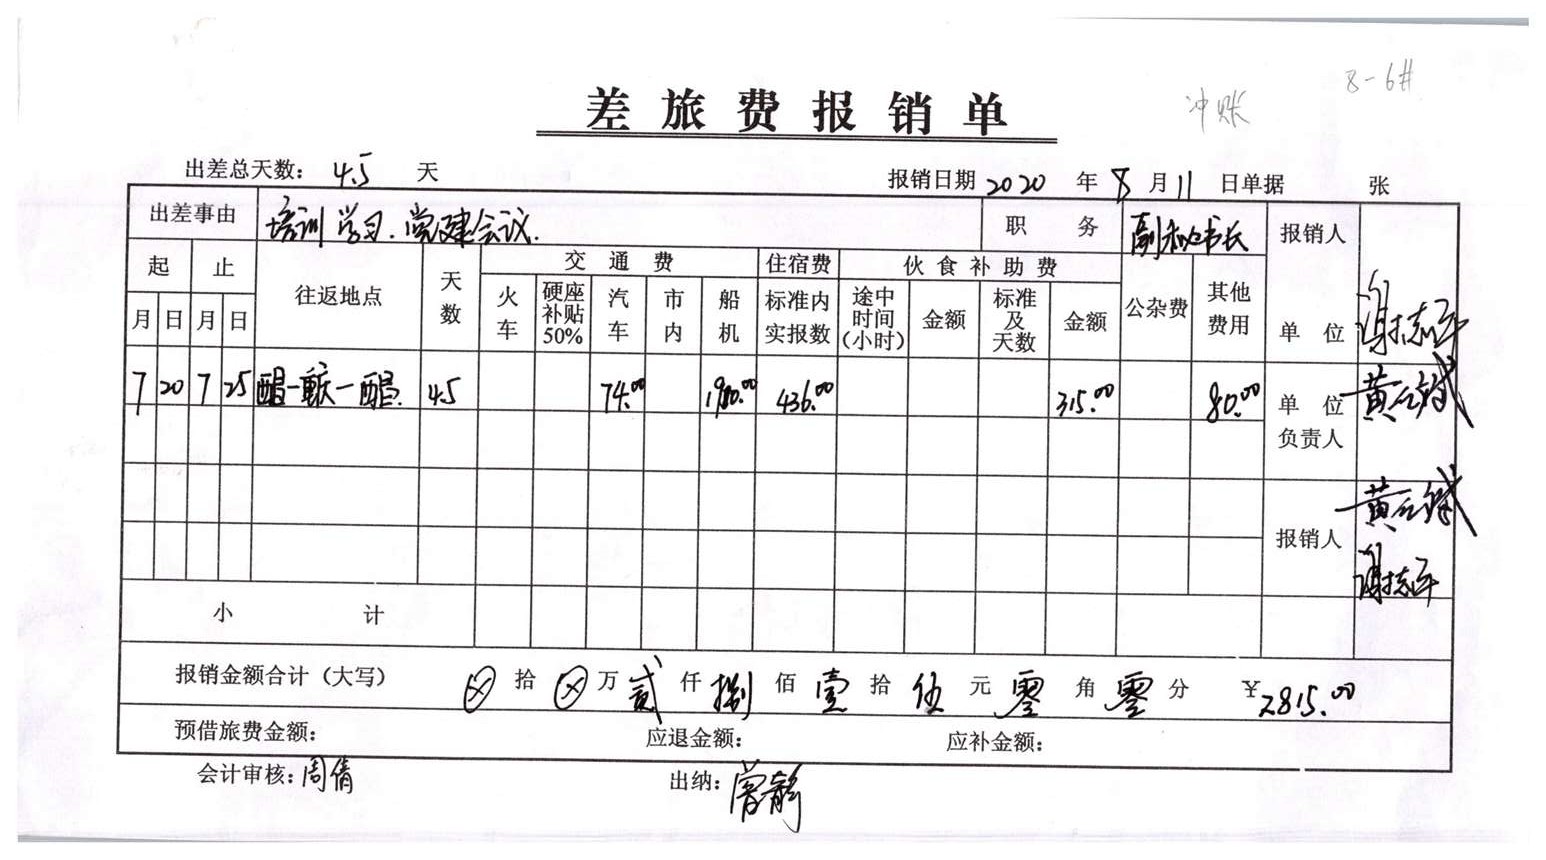 8-6#
冲账
差旅费报销单
出差总天数： 4.5 天 报销日期 2020 年 8 月 11 日单据 张
出差事由 培训学习.党建会议. 职务 副秘书长 报销人
起 止 往返地点 天数 交通费 住宿费 伙食补助费 公杂费 其他费用
月 日 月 日 火车 硬座补贴50% 汽车 市内 船机 标准内实报数 途中时间（小时） 金额 标准及天数 金额 单位 谢志平
7 20 7 25 4.5 74.00 436.00 315.00 80.00 单位负责人 黄
报销人 黄
谢志平
小计
报销金额合计（大写） ⊗ 拾 ⊗ 万 贰 仟 捌 佰 壹 拾 伍 元 零 角 零 分 ￥2815.00
预借旅费金额： 应退金额： 应补金额：
会计审核：周倩 出纳：